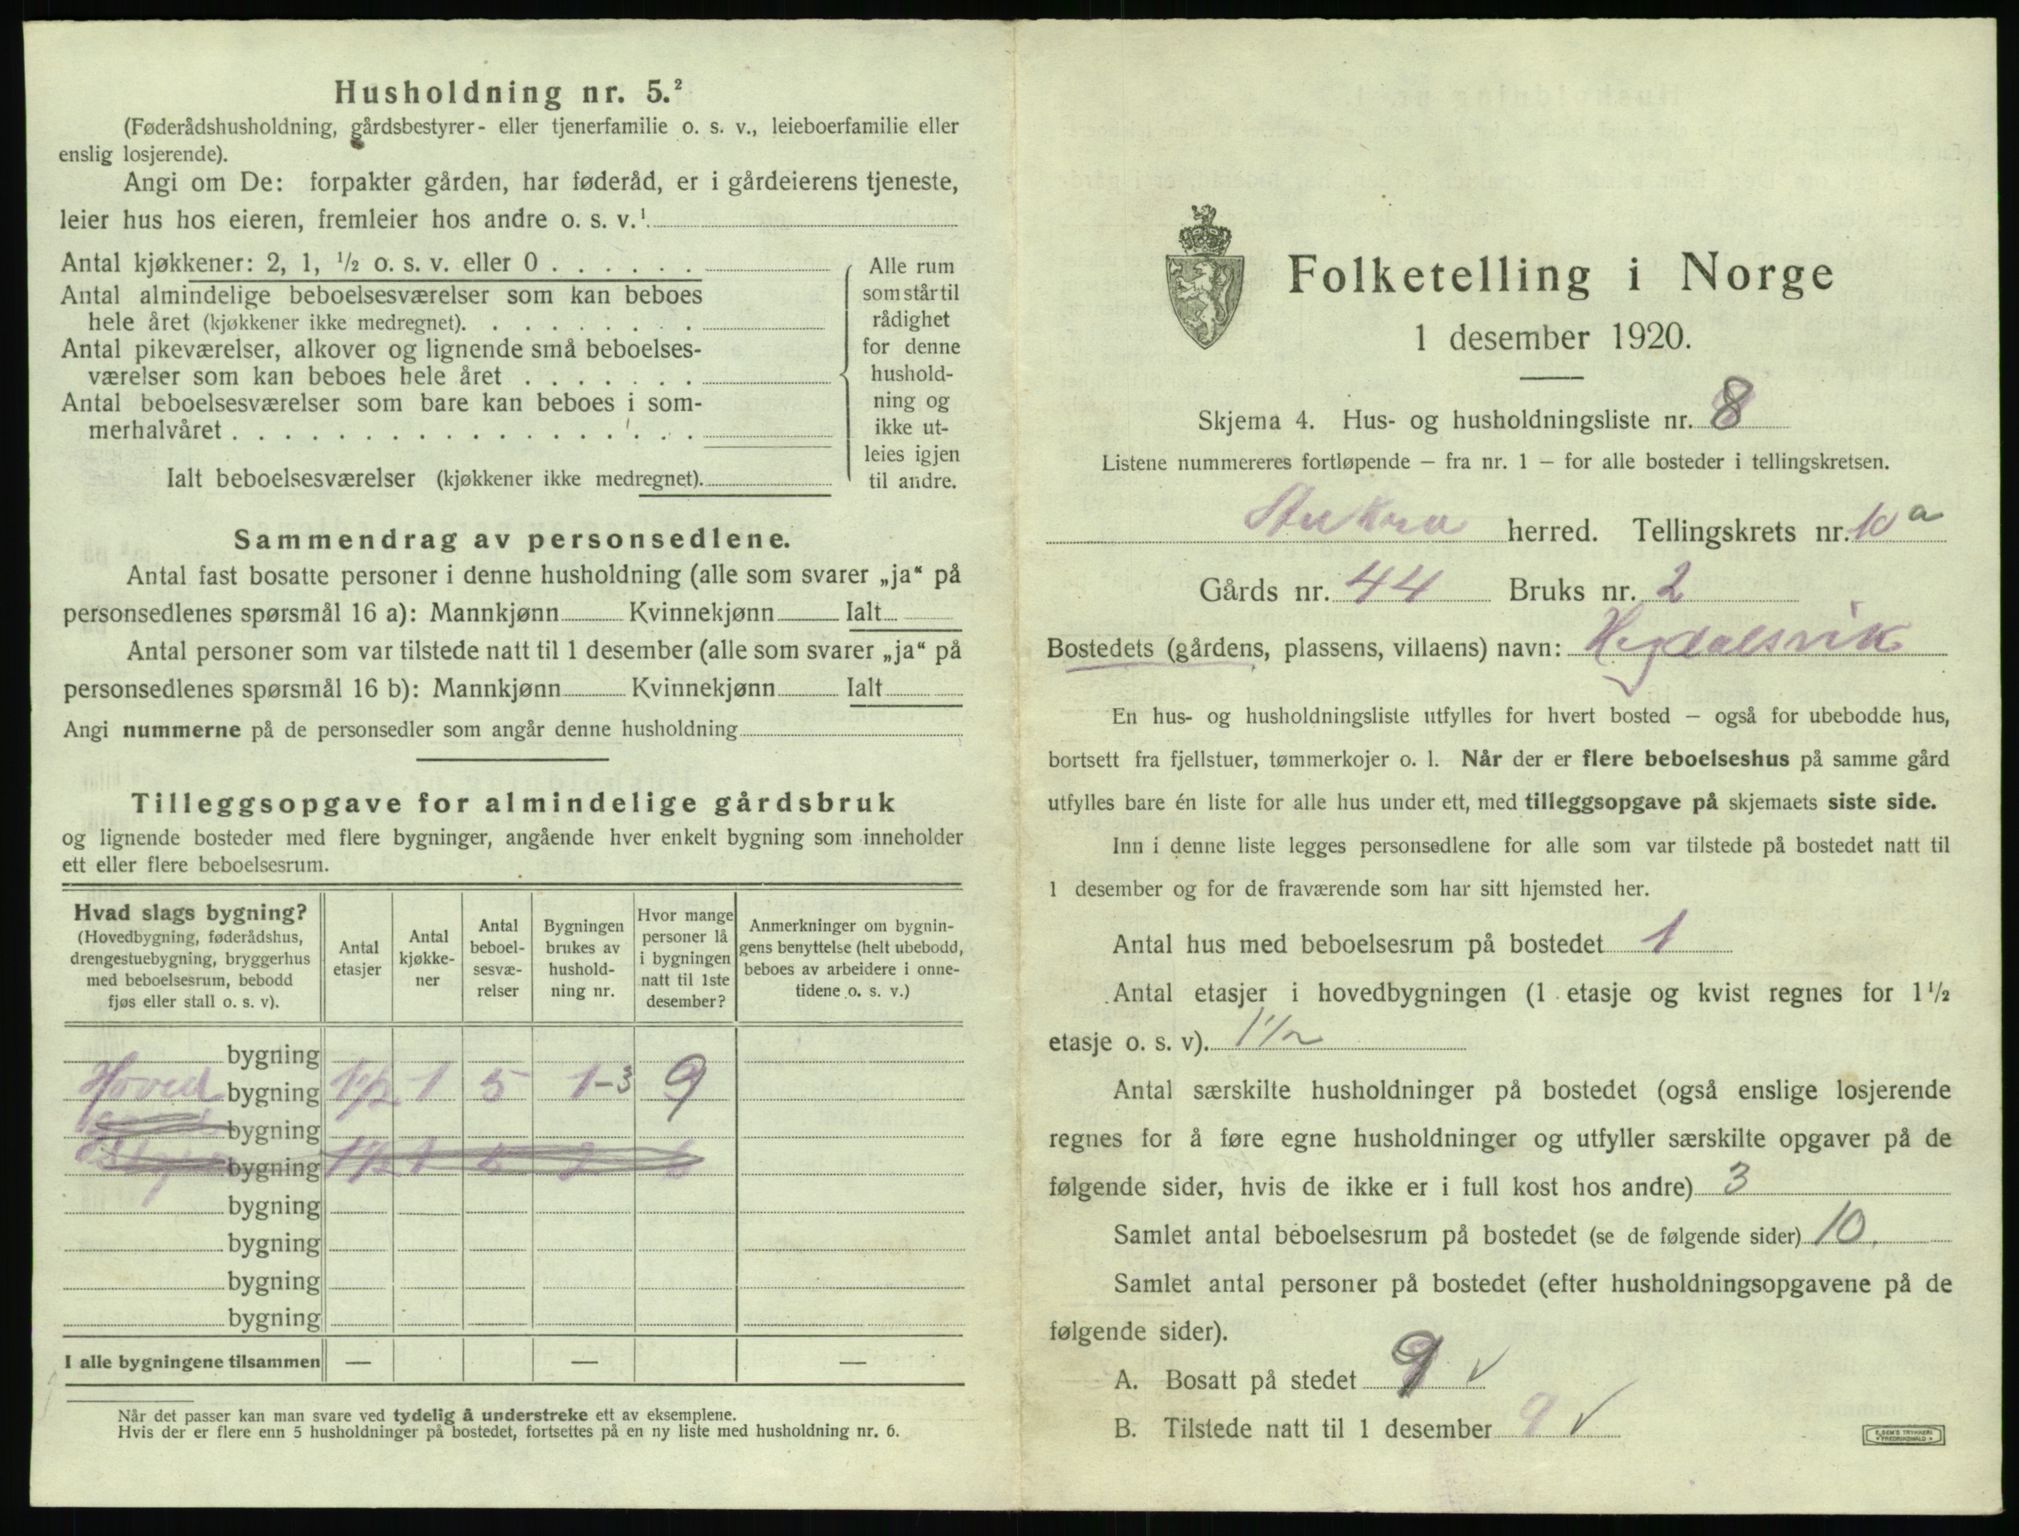 Husholdning nr. 5.²
(Føderådshusholdning, gårdsbestyrer- eller tjenerfamilie o. s. v., leieboerfamilie eller
enslig losjerende).
Angi om De: forpakter gården, har føderåd, er i gårdeierens tjeneste,
leier hus hos eieren, fremleier hos andre o. s. v.¹
Antal kjøkkener: 2, 1, ½ o. s. v. eller 0 . . . . . .
Antal almindelige beboelsesværelser som kan beboes
hele året (kjøkkener ikke medregnet). . . . . . . . .
Antal pikeværelser, alkover og lignende små beboelses-
værelser som kan beboes hele året . . . . . . .
Antal beboelsesværelser som bare kan beboes i som-
merhalvåret . . . . . . . . . . . . . . . . . .
Ialt beboelsesværelser (kjøkkener ikke medregnet).
Alle rum
som står til
rådighet
for denne
hushold-
ning og
ikke ut-
leies igjen
til andre.
Sammendrag av personsedlene.
Antal fast bosatte personer i denne husholdning (alle som svarer „ja“ på
personsedlenes spørsmål 16 a): Mannkjønn Kvinnekjønn Ialt
Antal personer som var tilstede natt til 1 desember (alle som svarer „ja“ på
personsedlenes spørsmål 16 b): Mannkjønn Kvinnekjønn Ialt
Angi nummerne på de personsedler som angår denne husholdning
Tilleggsopgave for almindelige gårdsbruk
og lignende bosteder med flere bygninger, angående hver enkelt bygning som inneholder
ett eller flere beboelsesrum.
Hvad slags bygning?
(Hovedbygning, føderådshus,
drengestuebygning, bryggerhus
med beboelsesrum, bebodd
fjøs eller stall o. s. v).
Antal
etasjer
Antal
kjøkke-
ner
Antal
beboel-
sesvæ-
relser
Bygningen
brukes av
hushold-
ning nr.
Hvor mange
personer lå
i bygningen
natt til 1ste
desember?
Anmerkninger om bygnin-
gens benyttelse (helt ubebodd,
beboes av arbeidere i onne-
tidene o. s. v.)
bygning
Hoved bygning 1½ 1 5 1-3 9
bygning
bygning 1½ 1
bygning
bygning
bygning
bygning
I alle bygningene tilsammen — — —
Når det passer kan man svare ved tydelig å understreke ett av eksemplene.
Hvis der er flere enn 5 husholdninger på bostedet, fortsettes på en ny liste med husholdning nr. 6.
Folketelling i Norge
1 desember 1920.
Skjema 4. Hus- og husholdningsliste nr. 8
Listene nummereres fortløpende – fra nr. 1 – for alle bosteder i tellingskretsen.
Aukra herred. Tellingskrets nr. 10 a
Gårds nr. 44 Bruks nr. 2
Bostedets (gårdens, plassens, villaens) navn: Hegdalsvik
En hus- og husholdningsliste utfylles for hvert bosted – også for ubebodde hus,
bortsett fra fjellstuer, tømmerkojer o. l. Når der er flere beboelseshus på samme gård
utfylles bare én liste for alle hus under ett, med tilleggsopgave på skjemaets siste side.
Inn i denne liste legges personsedlene for alle som var tilstede på bostedet natt til
1 desember og for de fraværende som har sitt hjemsted her.
Antal hus med beboelsesrum på bostedet 1
Antal etasjer i hovedbygningen (1 etasje og kvist regnes for 1½
etasje o. s. v). 1½
Antal særskilte husholdninger på bostedet (også enslige losjerende
regnes for å føre egne husholdninger og utfyller særskilte opgaver på de
følgende sider, hvis de ikke er i full kost hos andre) 3
Samlet antal beboelsesrum på bostedet (se de følgende sider) 10.
Samlet antal personer på bostedet (efter husholdningsopgavene på de
følgende sider).
A. Bosatt på stedet 9 ✓
B. Tilstede natt til 1 desember 9 ✓